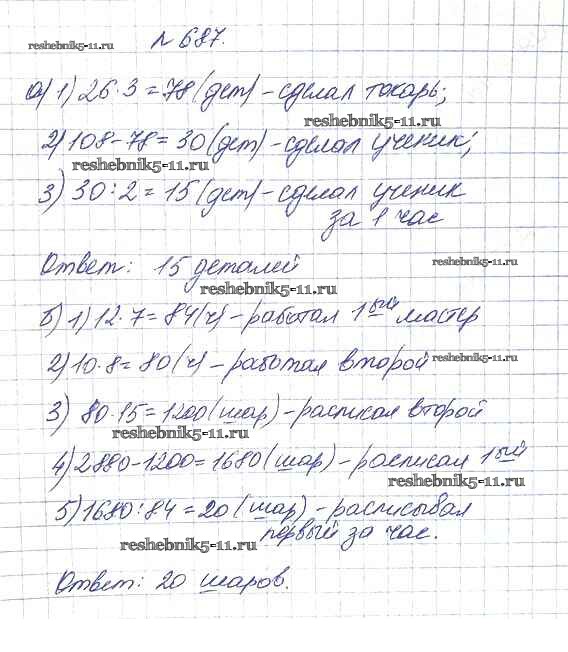 reshebnik5-11.ru
№ 687.
а) 1) 26·3=78 (дет) – сделал токарь;
reshebnik5-11.ru
2) 108-78=30 (дет) – сделал ученик;
reshebnik5-11.ru
3) 30:2=15 (дет) – сделал ученик
за 1 час
Ответ: 15 деталей
reshebnik5-11.ru
reshebnik5-11.ru
б) 1) 12·7=84 (ч) – работал 1ый мастер
2) 10·8=80 (ч) – работал второй
reshebnik5-11.ru
3) 80·15=1200 (шар) – расписал второй
reshebnik5-11.ru
4) 2880-1200=1680 (шар) – расписал 1ый
reshebnik5-11.ru
5) 1680:84=20 (шар) – расписывал
первый за час.
reshebnik5-11.ru
Ответ: 20 шаров.